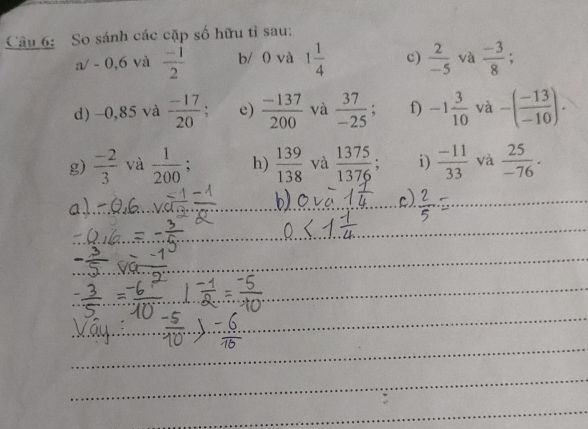 Câu 6: So sánh các cặp số hữu tỉ sau:
a/ - 0,6 và -1/2 b/ 0 và 1 1/4 c) 2/-5 và -3/8 ;
d) -0,85 và -17/20 ; e) -137/200 và 37/-25 ; f) -1 3/10 và -(-13/-10).
g) -2/3 và 1/200 ; h) 139/138 và 1375/1376 ; i) -11/33 và 25/-76 .
a) -0,6 và -1/2 -1/2 b) 0 và 1 1/4 c) 2/5 =
-0,6 = -3/5 0 < 1 1/4
-3/5 và -1/2
-3/5 = -6/10 | -1/2 = -5/10
Vậy : -5/10 > -6/10